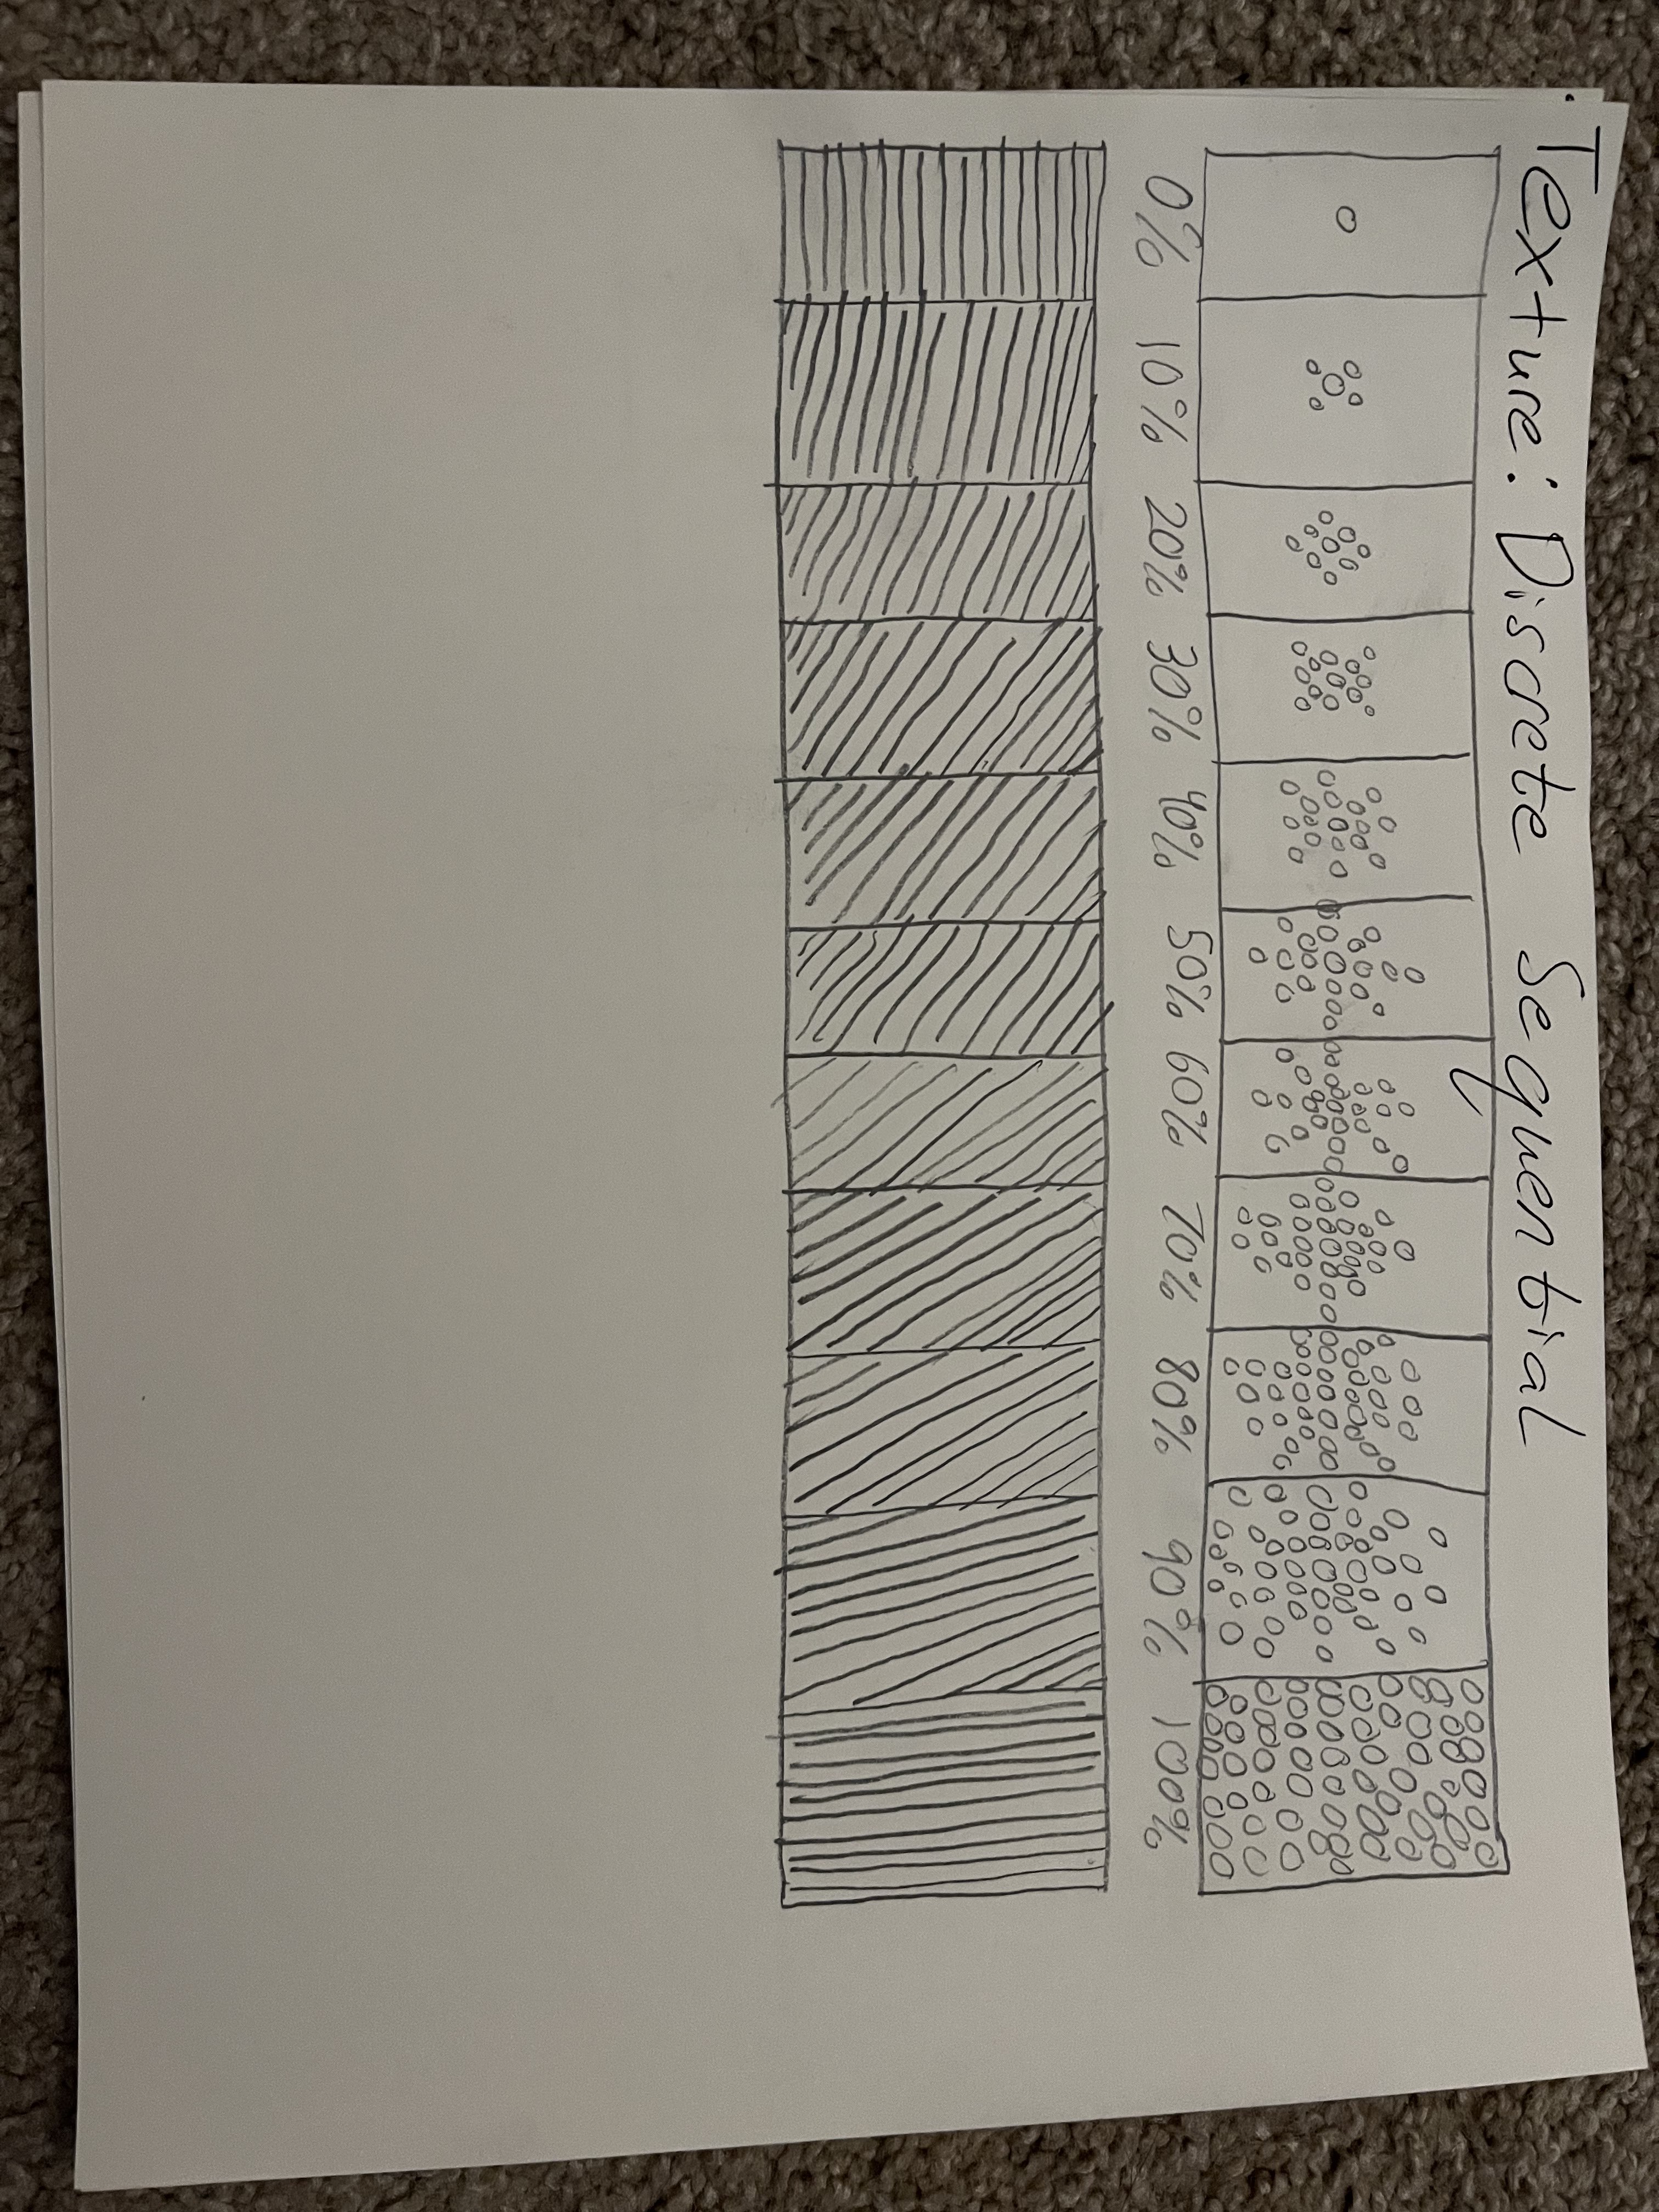 Texture: Discrete Sequential
0% 10% 20% 30% 40% 50% 60% 70% 80% 90% 100%